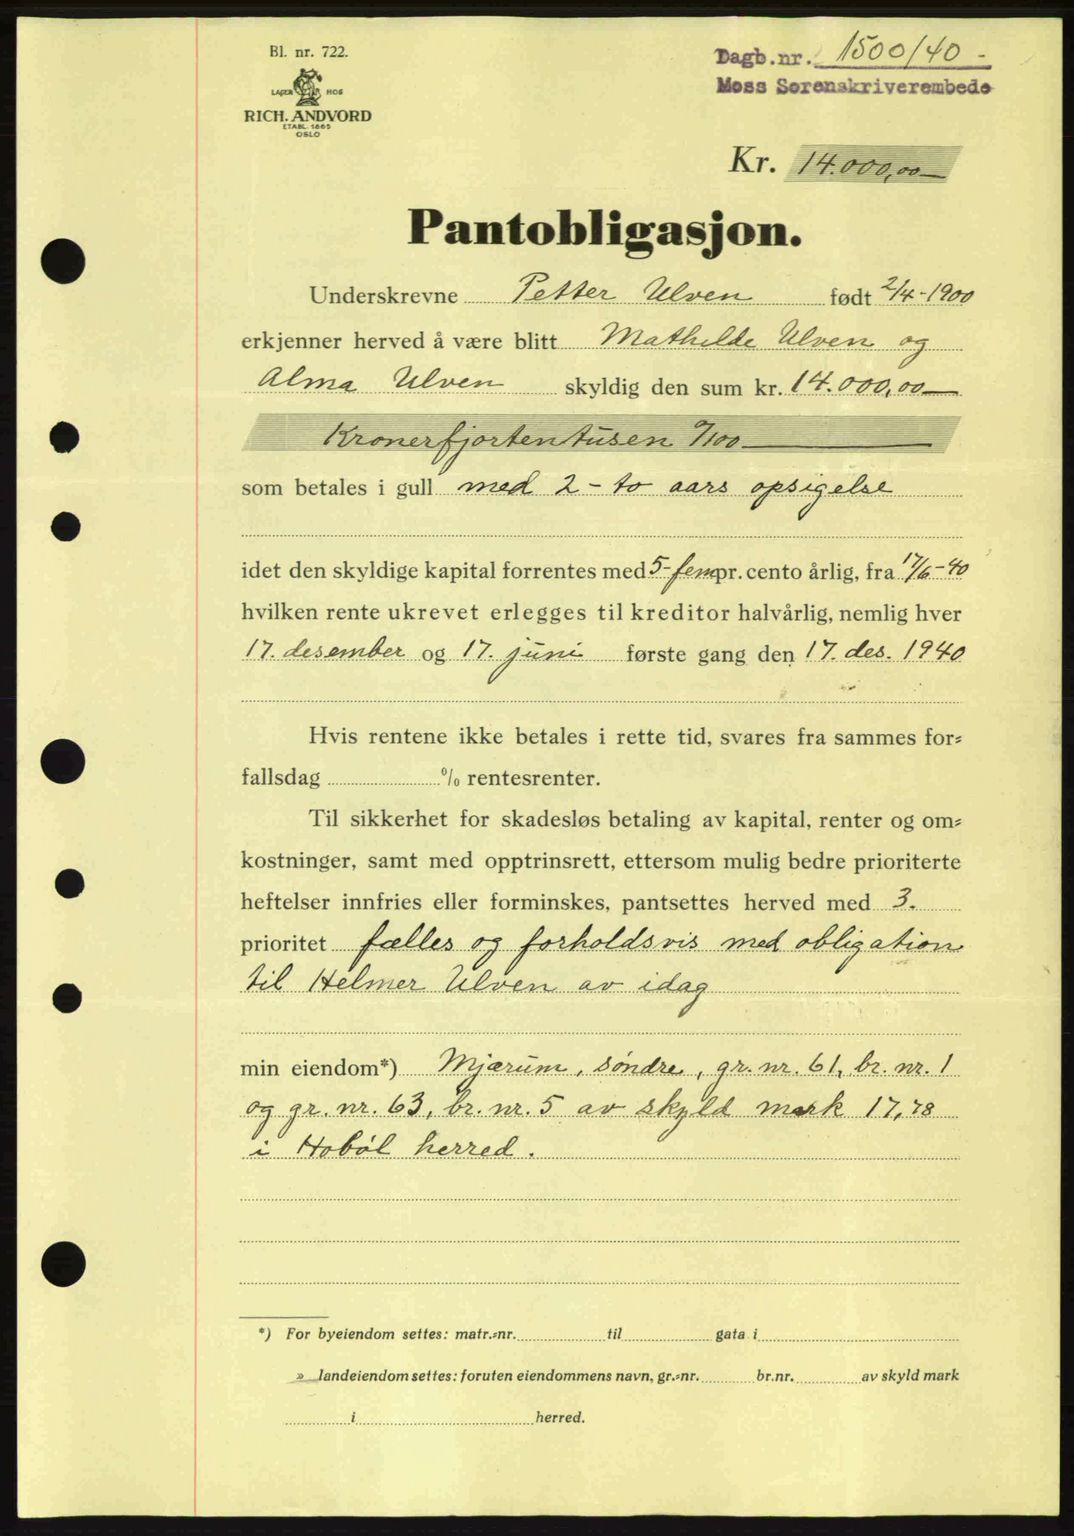 Bl. nr. 722.
LAGER HOS
RICH. ANDVORD
ETABL. 1865
OSLO
Dagb.nr. 1500/40 -
Moss Sorenskriverembede
Kr. 14.000,00
Pantobligasjon.
Underskrevne Petter Ulven født 2/4-1900
erkjenner herved å være blitt Mathilde Ulven og
Alma Ulven skyldig den sum kr. 14.000,00
Kronerfjortentusen 0/100
som betales i gull med 2 - to aars opsigelse
idet den skyldige kapital forrentes med 5-fem pr. cento årlig, fra 17/6-40
hvilken rente ukrevet erlegges til kreditor halvårlig, nemlig hver
17. desember og 17. juni første gang den 17. des. 1940
Hvis rentene ikke betales i rette tid, svares fra sammes for=
fallsdag % rentesrenter.
Til sikkerhet for skadesløs betaling av kapital, renter og om=
kostninger, samt med opptrinsrett, ettersom mulig bedre prioriterte
heftelser innfries eller forminskes, pantsettes herved med 3.
prioritet fælles og forholdsvis med obligation
til Helmer Ulven av idag
min eiendom*) Mjærum, søndre, gr. nr. 61, br. nr. 1
og gr. nr. 63, br. nr. 5 av skyld mark 17,78
i Hobøl herred.
*) For byeiendom settes: matr.=nr. til gata i
» landeiendom settes: foruten eiendommens navn, gr.=nr. br.nr. av skyld mark
i herred.